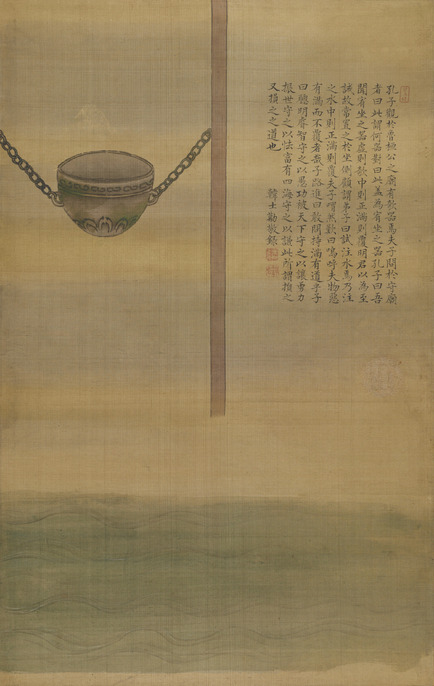 孔子觀於魯桓公之廟有欹器焉夫子問於守廟
者曰此謂何器對曰此蓋為宥坐之器孔子曰吾
聞宥坐之器虛則欹中則正滿則覆明君以為至
誡故常置之於坐側顧謂弟子曰試注水焉乃注
之水中則正滿則覆夫子喟然歎曰嗚呼夫物惡
有滿而不覆者哉子路進曰敢問持滿有道乎子
曰聰明睿智守之以愚功被天下守之以讓勇力
振世守之以怯富有四海守之以謙此所謂損之
又損之之道也 韓士勳敬錄